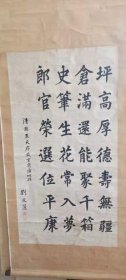 坪高厚德壽無疆
倉滿還能聚千箱
史筆生花常入夢
郎官榮選位平康